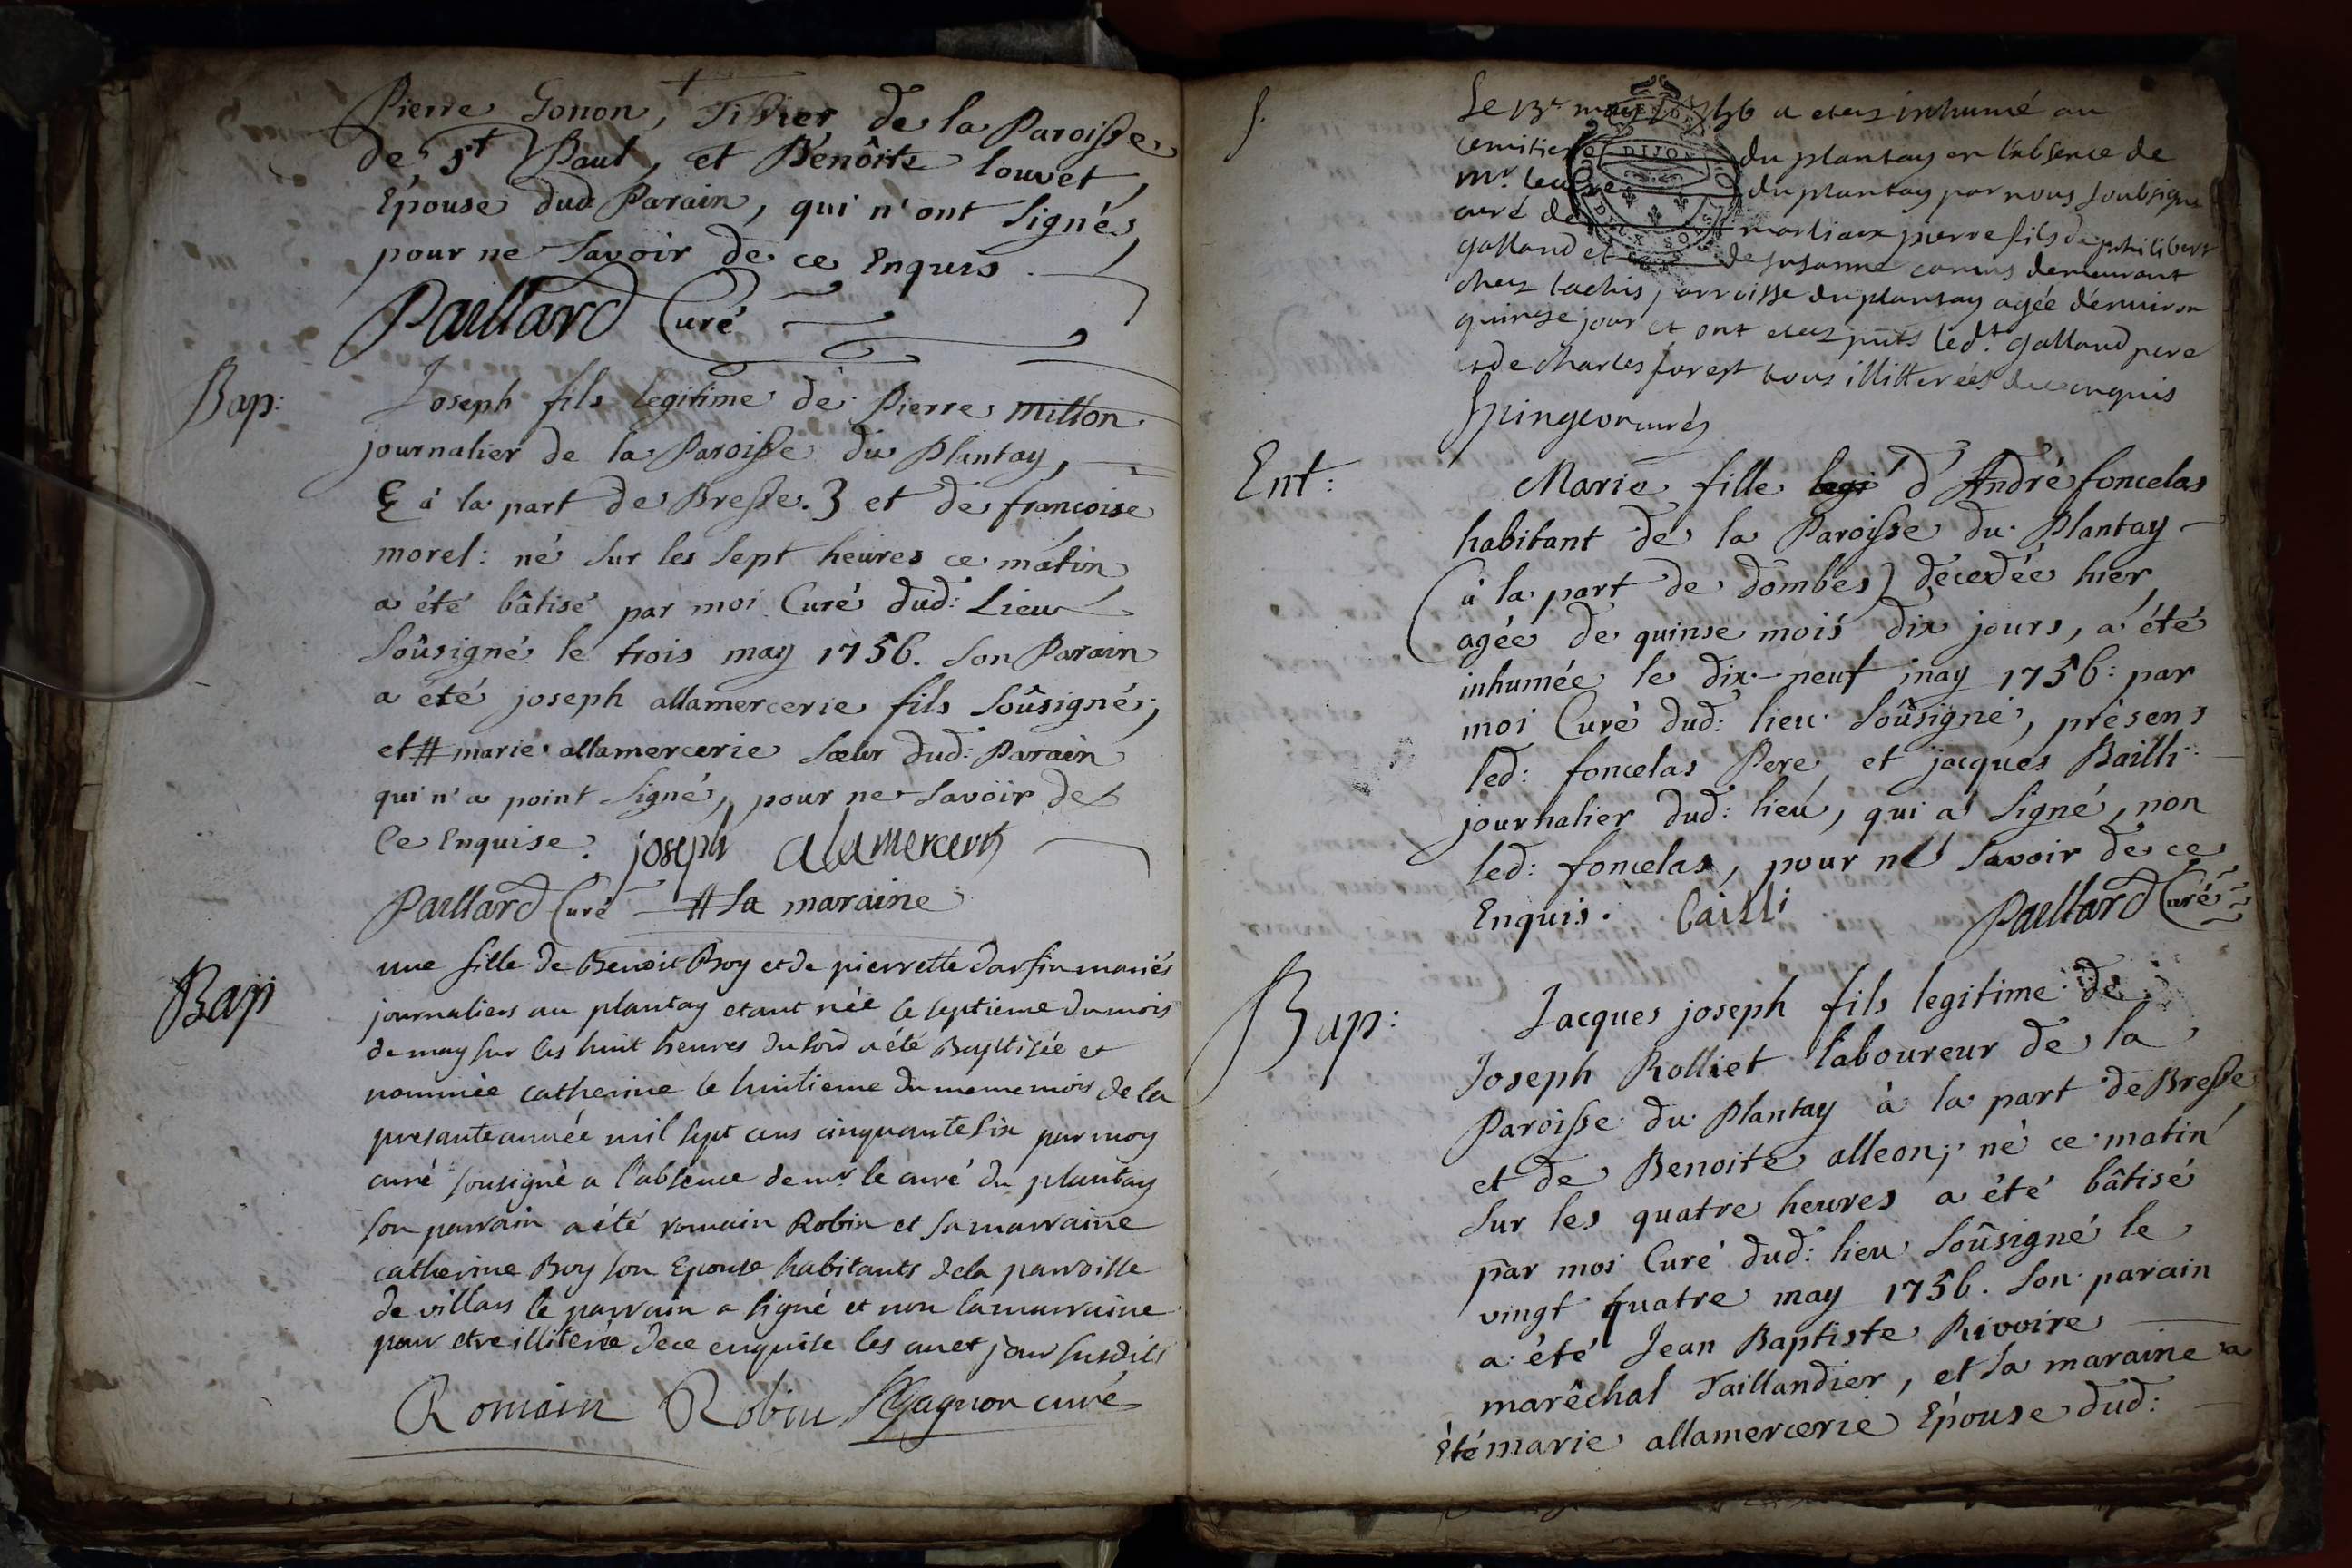 Pierre Gonon, Tissier de la Paroisse
de St Paul, et Benôite louvet,
Epouse dud. Parain, qui n'ont signés,
pour ne savoir de ce Enquis.
Paillard Curé
Bap: Joseph fils legitime de Pierre millon
journalier de la Paroisse du Plantay,
( à la part de Bresse. ) et de francoise
morel: né sur les sept heures ce matin
a été bâtisé par moi Curé dud: Lieu
Soûsigné le trois may 1756. Son Parain
a été joseph allamercerie fils Soûsigné;
et # marie allamercerie sœur dud: Parain
qui n'a point signé, pour ne savoir de
ce Enquise. joseph alamercerÿ
Paillard Curé # sa maraine
Bap une fille de Benoit Boy et de pierrette darfin mariés
journaliers au plantay etant née le septieme du mois
de may sur les huit heures du soir a été Baptisée et
nommée catherine le huitieme du meme mois de la
presante année mil sept cens cinquante six par moy
curé sousigné a l'absence de mr le curé du plantay
son parrain a été romain Robin et sa marraine
catherine Boy son Epouse habitants de la parroisse
de villars le parrain a signé et non la marraine
pour etre illiterée de ce enquise les an et jour susdits
Romain Robin Gagnon curé
Le 13e may 1756 a etez inhumé au
cemitier du plantay en l'absence de
mr. le curé du plantay par nous soubsigné
curé de marliaux pierre fils de philibert
galland et de susanne demeurant
chez tachis, parroisse du plantay agée d'enuiron
quinze jour et ont etez pnts led.t galland pere
et de charles forest tous illitterées de ce enquis
curéz
Ent: Marie fille legi d'André foncelas
habitant de la Paroisse du Plantay
(à la part de dombes) décedée hier,
agée de quinse mois dix jours, a été
inhumée le dix-neuf may 1756: par
moi Curé dud: lieu Soûsigné, présens
led: foncelas Pere, et jacques Bailli
journalier dud: lieu, qui a signé, non
led: foncelas, pour ne savoir de ce
Enquis. bailli Paillard Curé
Bap: Jacques joseph fils legitime de
Joseph Rolliet laboureur de la
Paroisse du Plantay à la part de Bresse
et de Benoite alleon; né ce matin
sur les quatre heures a été bâtisé
par moi Curé dud: lieu Soûsigné le
vingt quatre may 1756. Son parain
a été Jean Baptiste Rivoire
marêchal Taillandier, et sa maraine a
été marie allamercerie Epouse dud: